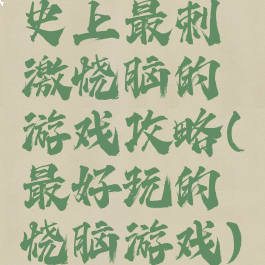 史上最刺
激烧脑的
游戏攻略(
最好玩的
烧脑游戏)